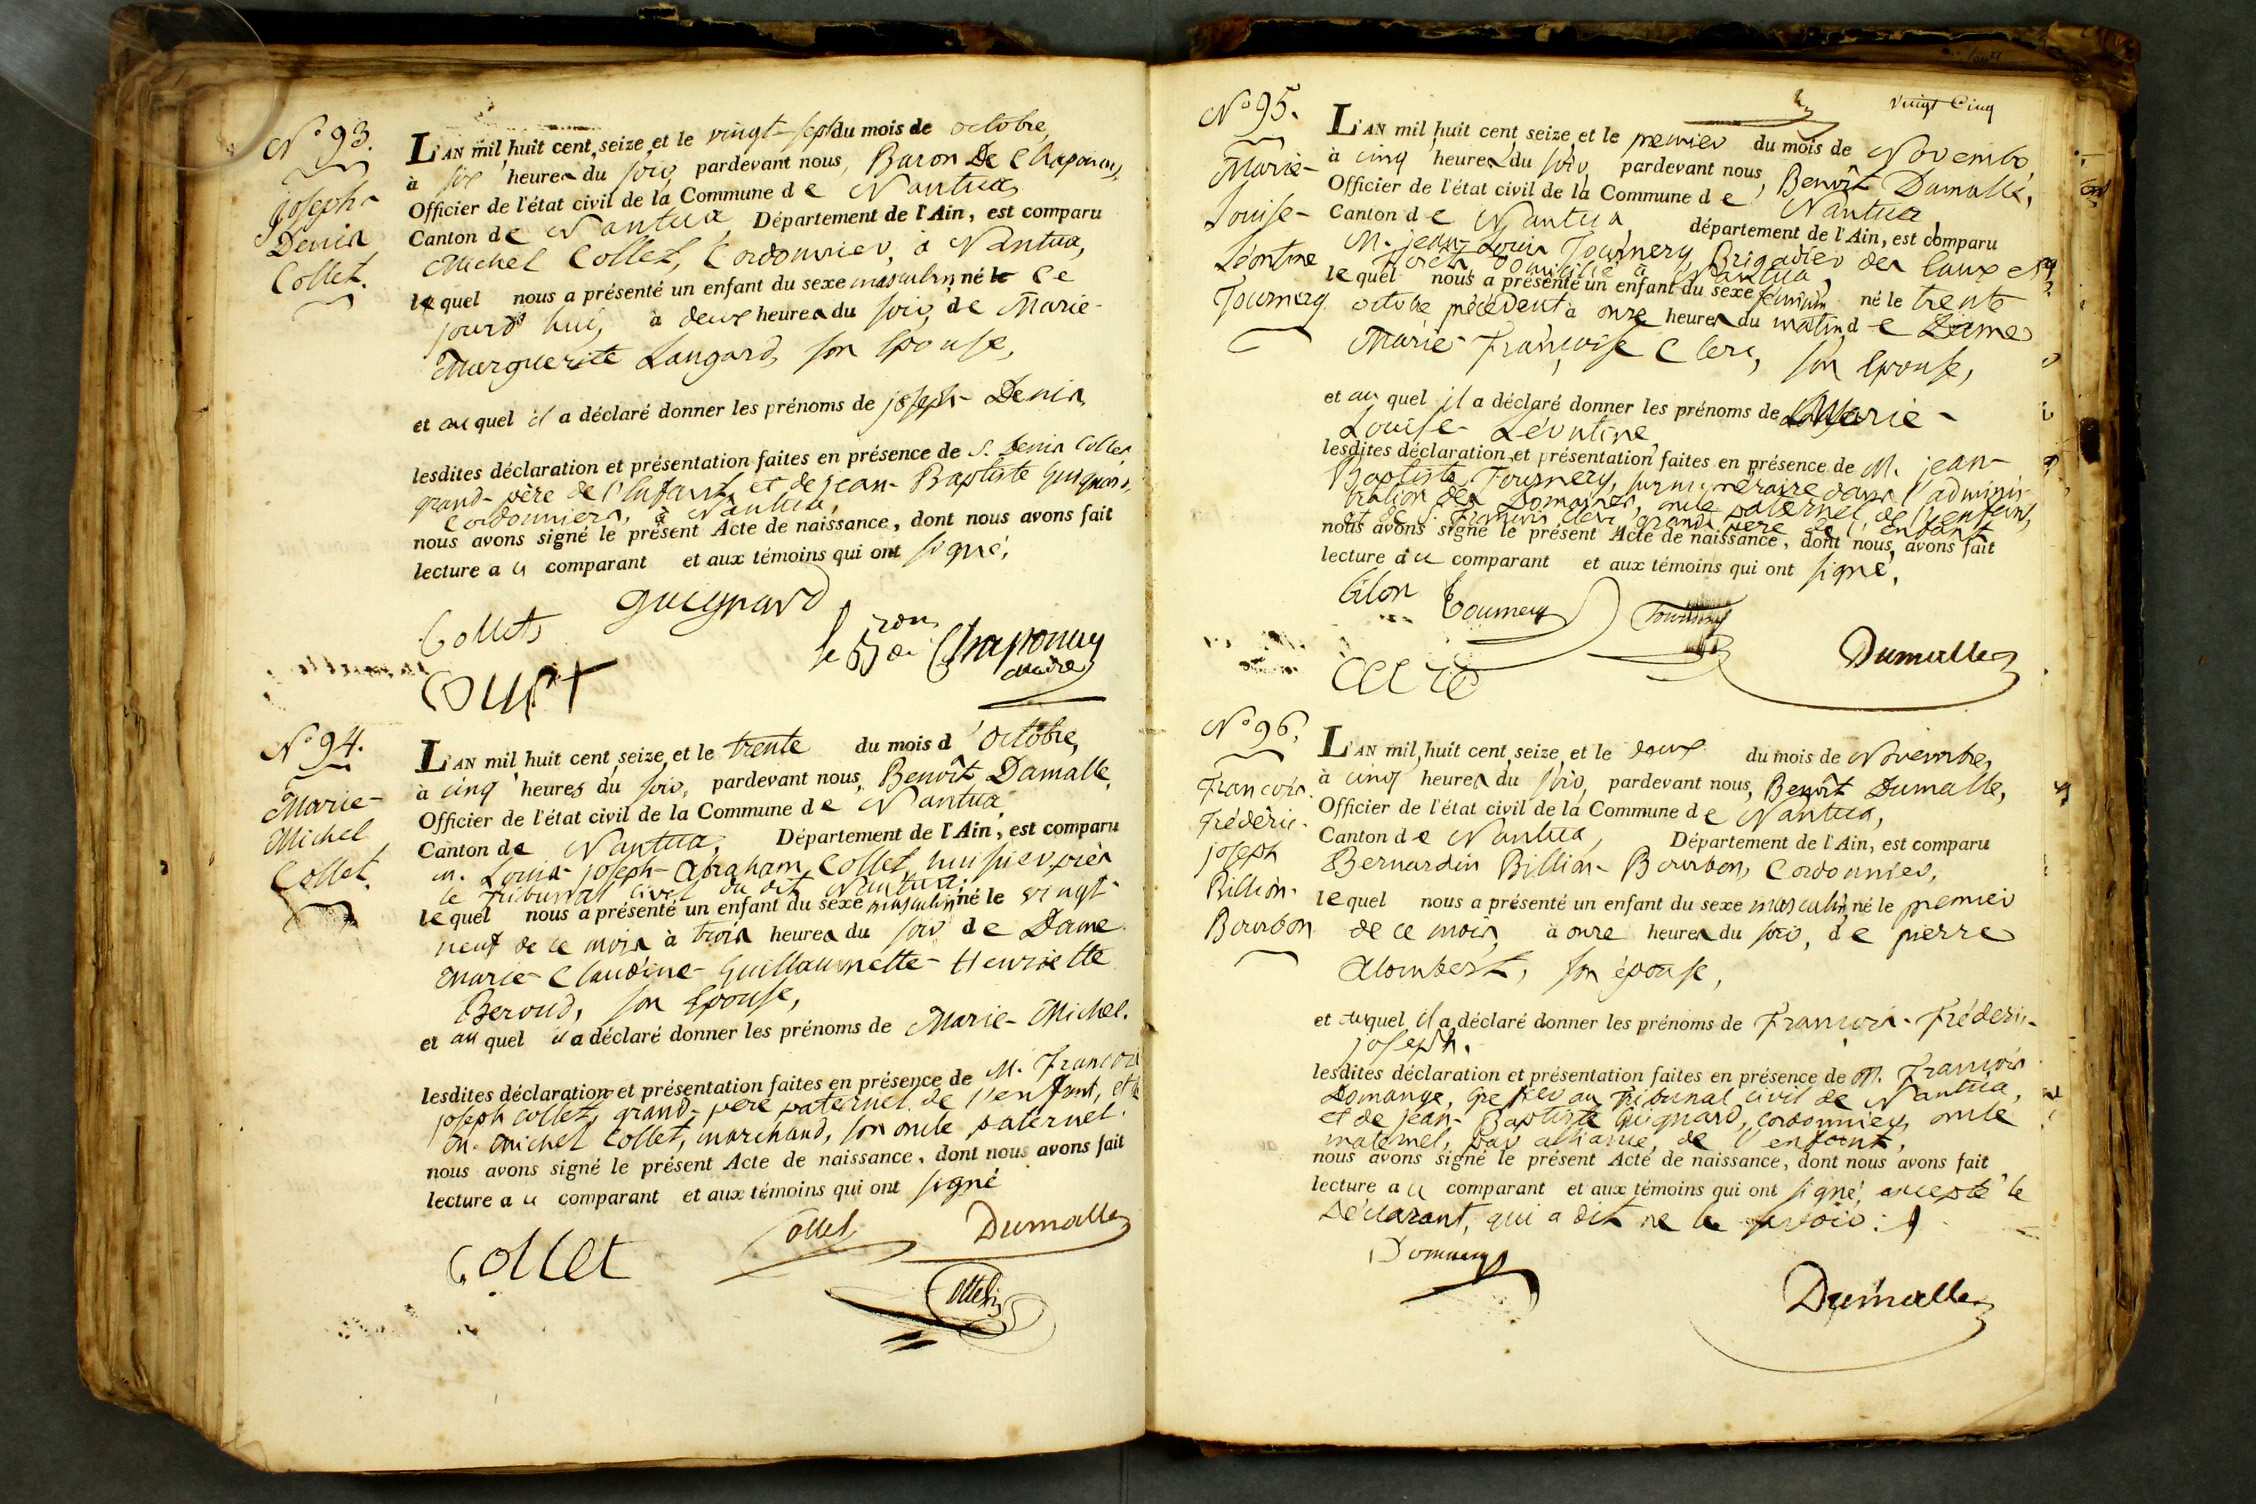 N° 93.
Joseph-
Denis
Collet.
L'AN mil huit cent seize et le vingt-sept du mois de octobre,
à six heures du soir, pardevant nous, Baron De Chaponay,
Officier de l'état civil de la Commune de Nantua,
Canton de Nantua, Département de l'Ain, est comparu
Michel Collet, Cordonnier, à Nantua,
lequel nous a présenté un enfant du sexe masculin, né le ce
jourd'hui, à deux heures du soir, de Marie-
Marguerite Laugard, son Epouse,
et auquel il a déclaré donner les prénoms de joseph-Denis,
lesdites déclaration et présentation faites en présence de S. Denis Collet
grand-père de l'Enfant, et de jean-Baptiste Guignard,
Cordonniers, à Nantua,
nous avons signé le présent Acte de naissance, dont nous avons fait
lecture au comparant et aux témoins qui ont signé.
Collet guignard
le Bon de Chaponay
Maire
N° 94.
Marie-
Michel
Collet.
L'AN mil huit cent seize et le trente du mois d'octobre,
à cinq heures du soir, pardevant nous, Benoît Dumalle,
Officier de l'état civil de la Commune de Nantua,
Canton de Nantua, Département de l'Ain, est comparu
M. Louis-joseph-Abraham Collet, huissier près
le Tribunal civil du dit Nantua,
lequel nous a présenté un enfant du sexe masculin, né le vingt-
neuf de ce mois à trois heures du soir de Dame
Marie-Claudine-Guillaumette-Henriette
Beroud, son Epouse,
et auquel il a déclaré donner les prénoms de Marie-Michel.
lesdites déclaration et présentation faites en présence de M. François
joseph Collet, grand-père paternel de l'enfant, et de
M. Michel Collet, marchand, son oncle paternel.
nous avons signé le présent Acte de naissance, dont nous avons fait
lecture au comparant et aux témoins qui ont signé
Collet Collet Dumalle
Vingt Cinq
N° 95.
Marie-
Louise-
Léontine
Tournery
L'AN mil huit cent seize et le premier du mois de Novembre,
à cinq heures du soir, pardevant nous, Benoît Dumalle,
Officier de l'état civil de la Commune de Nantua,
Canton de Nantua, département de l'Ain, est comparu
M. jean-Louis Tournery, Brigadier des Eaux et
Forêts, domicilié à Nantua,
lequel nous a présenté un enfant du sexe féminin né le trente
octobre précédent à onze heures du matin, de Dame
Marie-Françoise Clerc, son Epouse,
et auquel il a déclaré donner les prénoms de Marie-
Louise-Léontine,
lesdites déclaration et présentation faites en présence de M. jean-
Baptiste Tournery, surnuméraire dans l'adminis-
tration des Domaines, oncle paternel de l'enfant,
et de S. François Clerc, grand-père de l'enfant
nous avons signé le présent Acte de naissance, dont nous avons fait
lecture au comparant et aux témoins qui ont signé.
Tournery Tournery
Dumalle
N° 96.
François-
Fréderic-
joseph
Billion-
Bourbon
L'AN mil huit cent seize et le deux du mois de Novembre,
à cinq heures du soir, pardevant nous, Benoît Dumalle,
Officier de l'état civil de la Commune de Nantua,
Canton de Nantua, Département de l'Ain, est comparu
Bernardin Billion-Bourbon, Cordonnier,
lequel nous a présenté un enfant du sexe masculin, né le premier
de ce mois, à onze heures du soir, de pierre
Alombert, son épouse,
et auquel il a déclaré donner les prénoms de François-Fréderic-
joseph.
lesdites déclaration et présentation faites en présence de M. François
Domange, Greffier au Tribunal civil de Nantua,
et de jean-Baptiste Guignard, cordonnier, oncle
maternel, par alliance, de l'enfant.
nous avons signé le présent Acte de naissance, dont nous avons fait
lecture au comparant et aux témoins qui ont signé, excepté le
Déclarant, qui a dit ne le savoir.
Dumalle